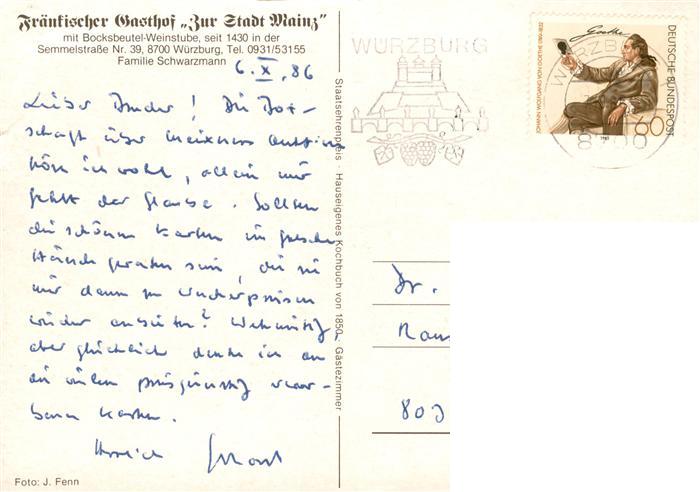 Fränkischer Gasthof „Zur Stadt Mainz"
mit Bocksbeutel-Weinstube, seit 1430 in der
Semmelstraße Nr. 39, 8700 Würzburg, Tel. 0931/53155
Familie Schwarzmann
6. X. 86
Lieber Bruder! Die Bot-
schaft über
hör ich wohl, allein mir
fehlt der Glaube. Sollten
die schönen Karten in falsche
Hände geraten sein, die sie
mir dann zu Wucherpreisen
wieder anbieten? Wehmütig,
aber glücklich denke ich an
die vielen preisgünstig erwor-
benen Karten.
Herzlich
Foto: J. Fenn
Staatsehrenpreis · Hauseigenes Kochbuch von 1850, Gästezimmer
WÜRZBURG
Goethe
JOHANN WOLFGANG VON GOETHE 1749-1832
DEUTSCHE BUNDESPOST
60
WÜRZBURG
Dr.
803